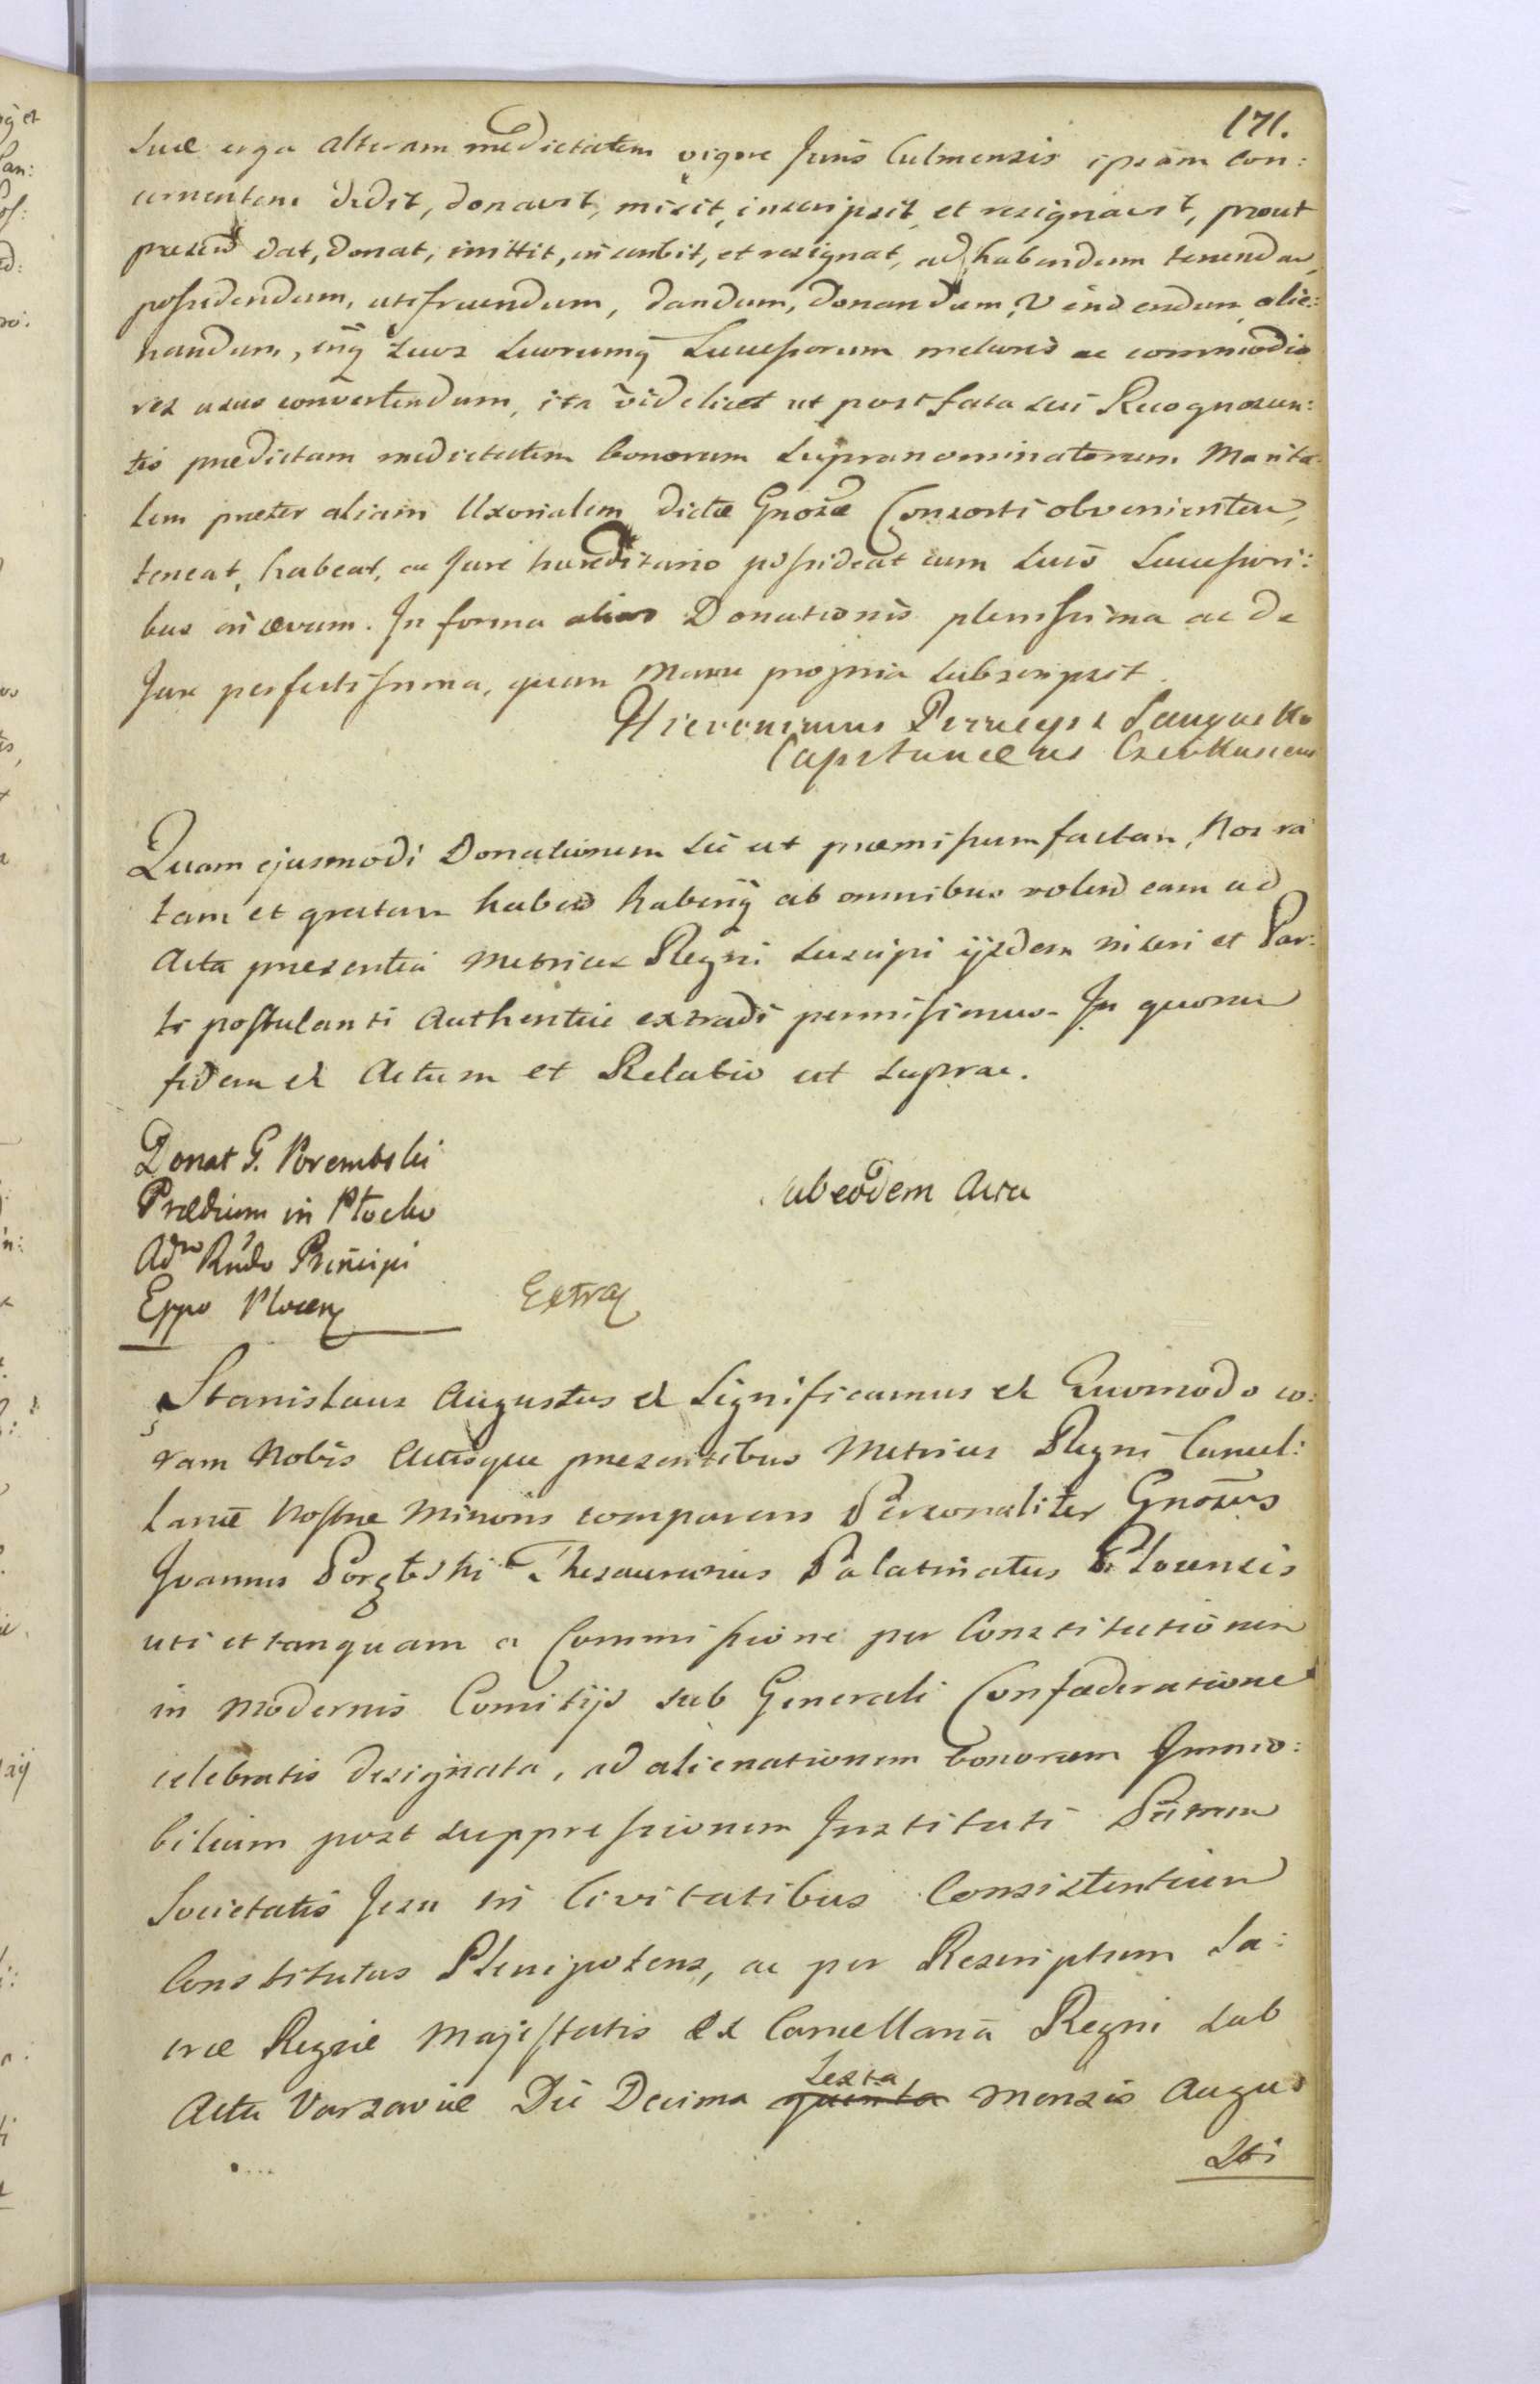 171.
suæ erga alteram medietatem vigore Juris Culmensis ipsam con:
cernentem dedit, donavit, misit, inscripsit, et resignavit, prout
presend dat, donat, imittit, inscribit, et resignat, ad habendum tenendum,
possidendum, utifruendum, dandum, donandum, vendendum, alie:
nandum, inq suos suorumq Successorum meliores ac commodio
res usus convertendum, ita videlicet ut post fata sui Recognoscen:
tis prædictam medietatem bonorum supranominatorum Marita
lem præter aliam Uxorialem dictæ Gnosæ Consorti obvenientem,
teneat, habeat, ac Jure hæreditario possideat cum suis Successori:
bus in ævum. In forma alias Donationis plenissima ac de
Jure perfectissima, quam manu propria subscripsit.
Hieronimus Sanguszko
Capitanæus Czerkasiens
Quam ejusmodi Donationem sic ut præmissum factam, Nos ra
tam et gratam habend haberiq ab omnibus volend eam ad
Acta presentia Metrices Regni suscipi ijsdem inseri et Par:
ti postulanti Authentice extradi permisimus. In quorum
fidem et Actum et Relatio ut supra.
Donat G. Porembski
Prædium in Płocko
Adm Rndo Principi
Eppo Plocen
Sub eodem Actu
Extra
Stanislaus Augustus et Significamus et Quomodo co:
ram Nobis Actisque presentibus Metrices Regni Cancel:
lariæ Nostræ Minoris comparens Personaliter Gnosus
Joannes Porębski Thesaurarius Palatinatus Plocensis
uti et tanquam a Commissione per Constitutionem
in modernis Comitijs sub Generali Confæderatione
celebratis designata, ad alienationem bonorum Immo:
bilium post suppressionem Instituti Patrum
Societatis Jesu in Civitatibus Consistentium
Constitutus Plenipotens, ac per Rescriptum Sa:
cræ Regiæ Majestatis ex Cancellaria Regni sub
Actu Varsaviæ Die Decima quinta Sexta mensis Augus
sti